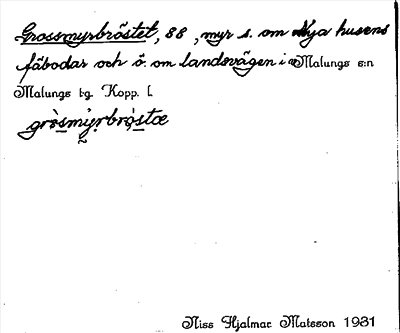 Grossmyrbröstet, 88, myr s. om Nya husens
fäbodar och ö. om landsvägen i Malungs s:n
Malungs tg. Kopp. l.
Nils Hjalmar Matsson 1931